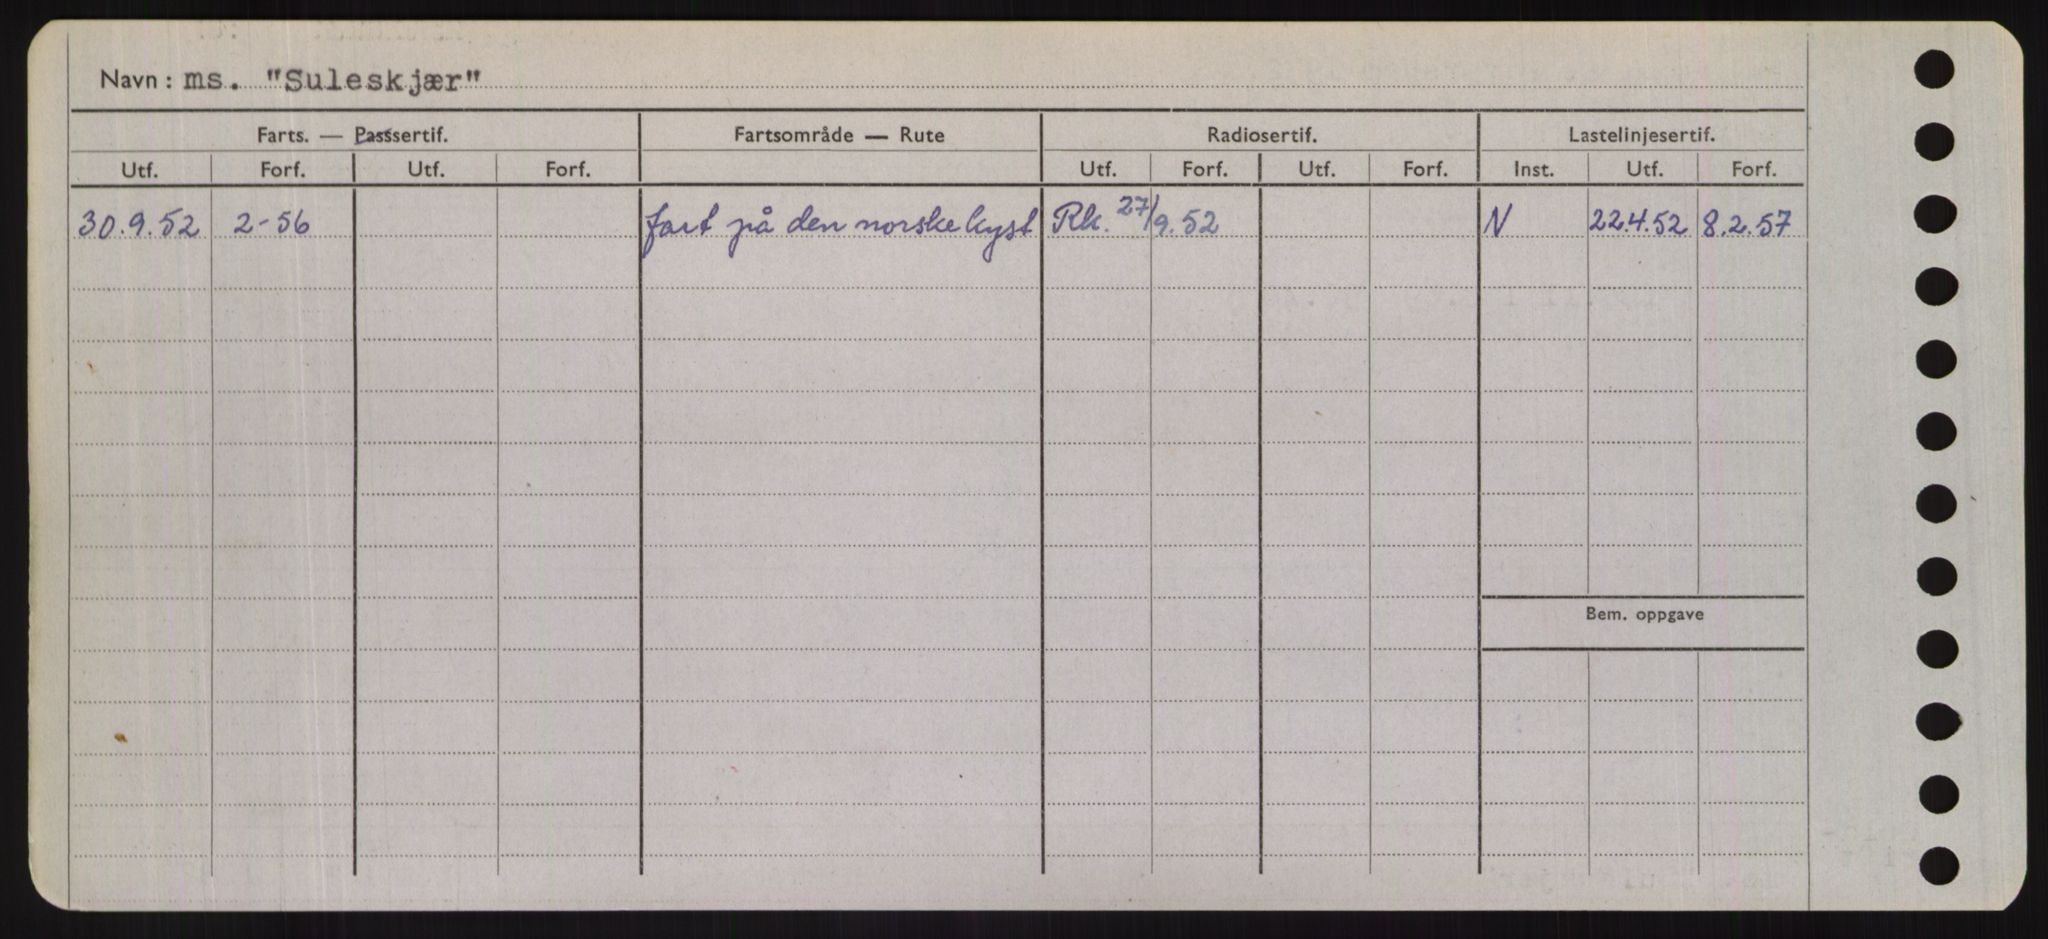 Navn: ms. "Suleskjær"
Farts. — Passsertif. Fartsområde — Rute Radiosertif. Lastelinjesertif.
Utf. Forf. Utf. Forf. Utf. Forf. Utf. Forf. Inst. Utf. Forf.
30.9.52 2-56 fart på den norske kyst Rk. 27/9.52 N 22.4.52 8.2.57
Bem. oppgave